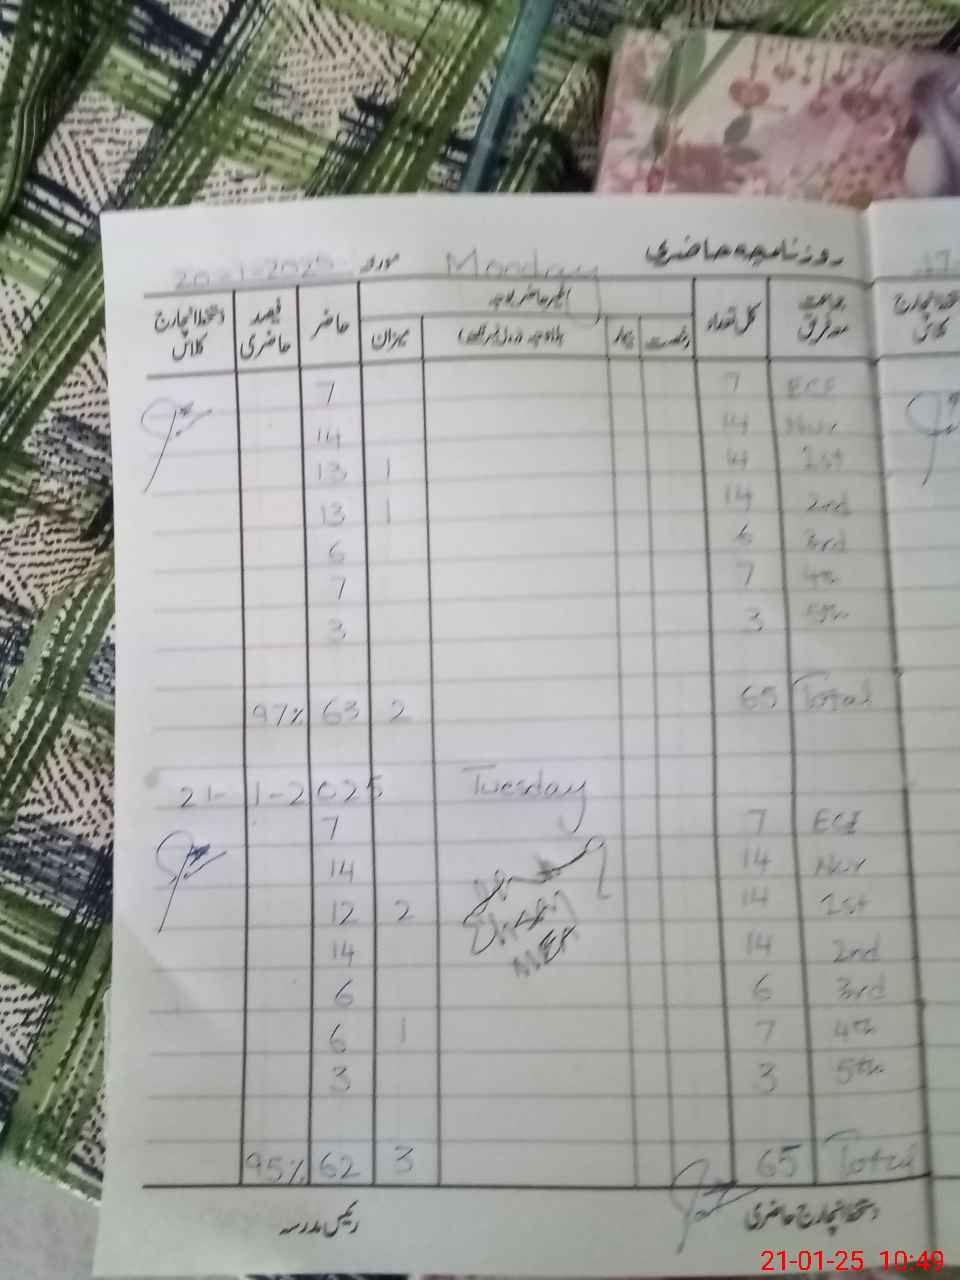 روزنامچہ حاضری Monday مورخہ 20-1-2025
جماعت معہ فرق کل تعداد غیر حاضر بوجہ حاضر فیصد حاضری دستخط انچارج کلاس
رخصت بیمار بلاوجہ (رول نمبر) میزان
ECE 7 7
Nur 14 14
1st 14 1 13
2nd 14 1 13
3rd 6 6
4th 7 7
5th 3 3
Total 65 2 63 97%
Tuesday 21-1-2025
ECE 7 7
Nur 14 14
1st 14 2 12
2nd 14 14
3rd 6 6
4th 7 1 6
5th 3 3
Total 65 3 62 95%
دستخط انچارج حاضری رئیس مدرسہ
21-01-25 10:49